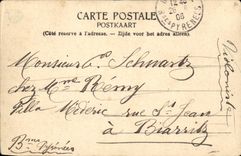 CARTE POSTALE
POSTKAART
(Côté réservé à l'adresse. — Zijde voor het adres alleen.)
Monsieur Schwartz
chez Mme Rémy
Villa Médéric rue St Jean
à Biarritz
Bses Pyrénées